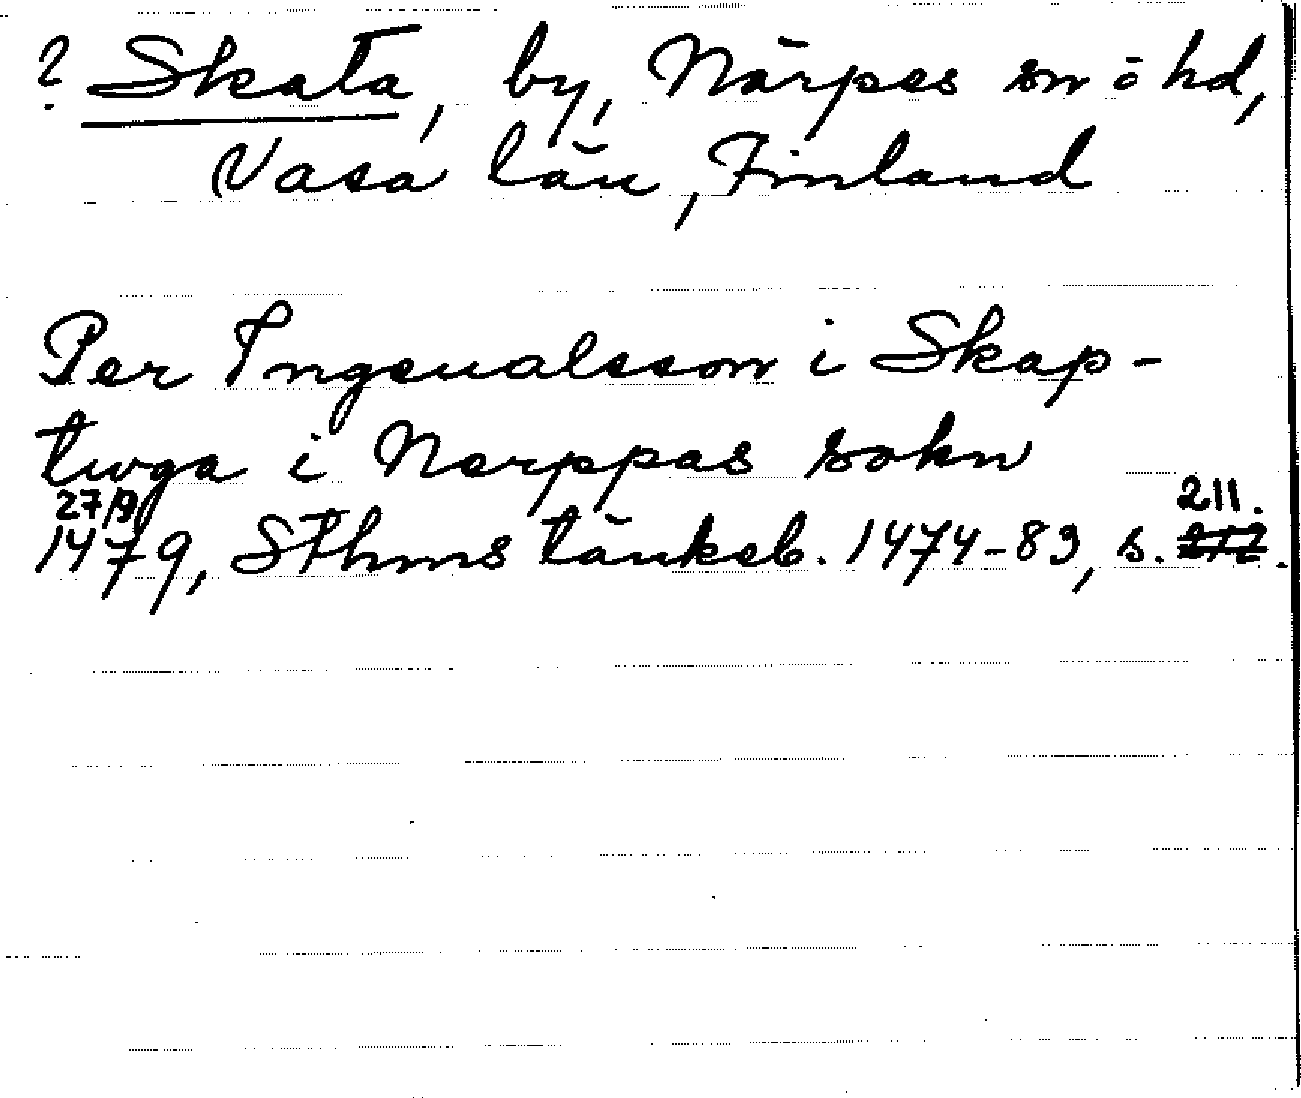 ? Skata, by, Närpes sn o hd,
Vasa län, Finland
Per Ingeualsson i Skap-
twga i Nerppas sokn
27/9 211.
1479, Sthms tänkeb. 1474-83, s. 212.